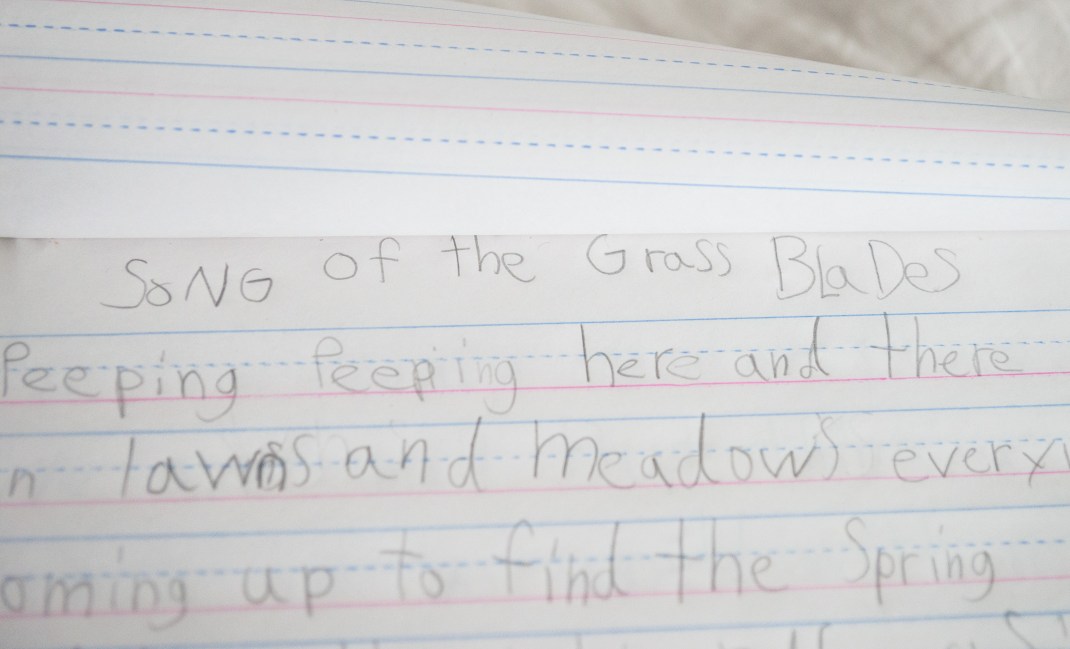 SoNG of the Grass BLaDeS
Peeping Peeping here and there
n lawns and Meadows every
oming up to find the Spring